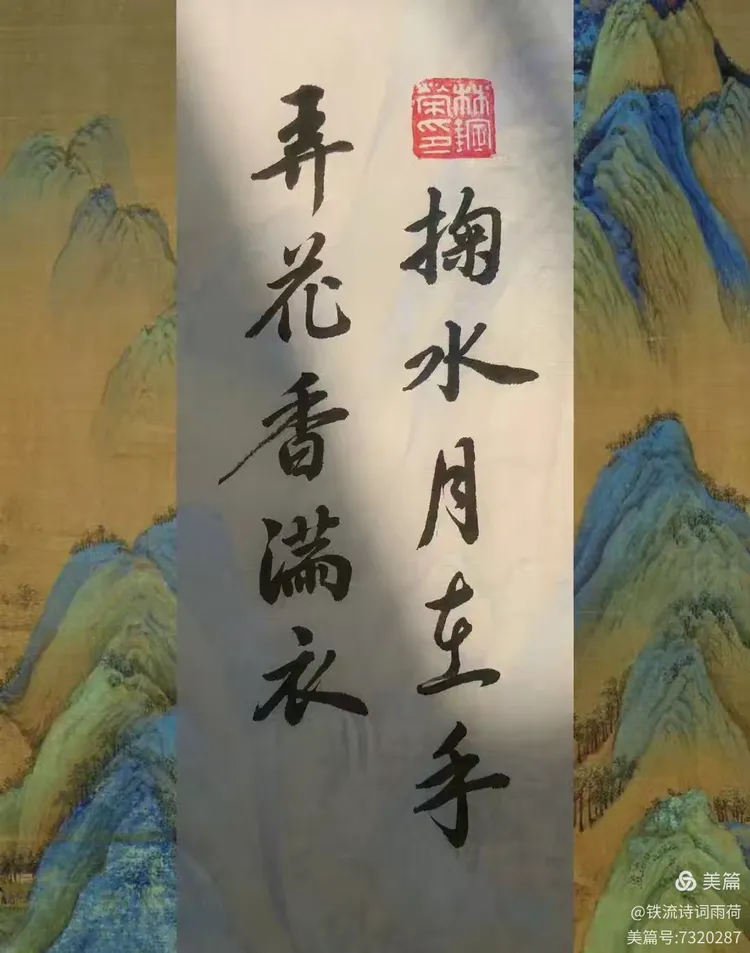 掬水月在手
弄花香满衣
美篇
@铁流诗词雨荷
美篇号:7320287